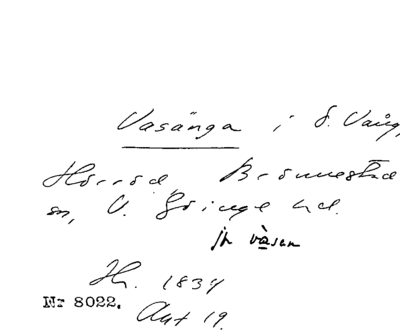 Vasänga i S. Vång,
Hörröd Brönnestad
sn, V. Göinge hd.
jfr väsen
Hr. 1834
Nr 8022. Akt 19.